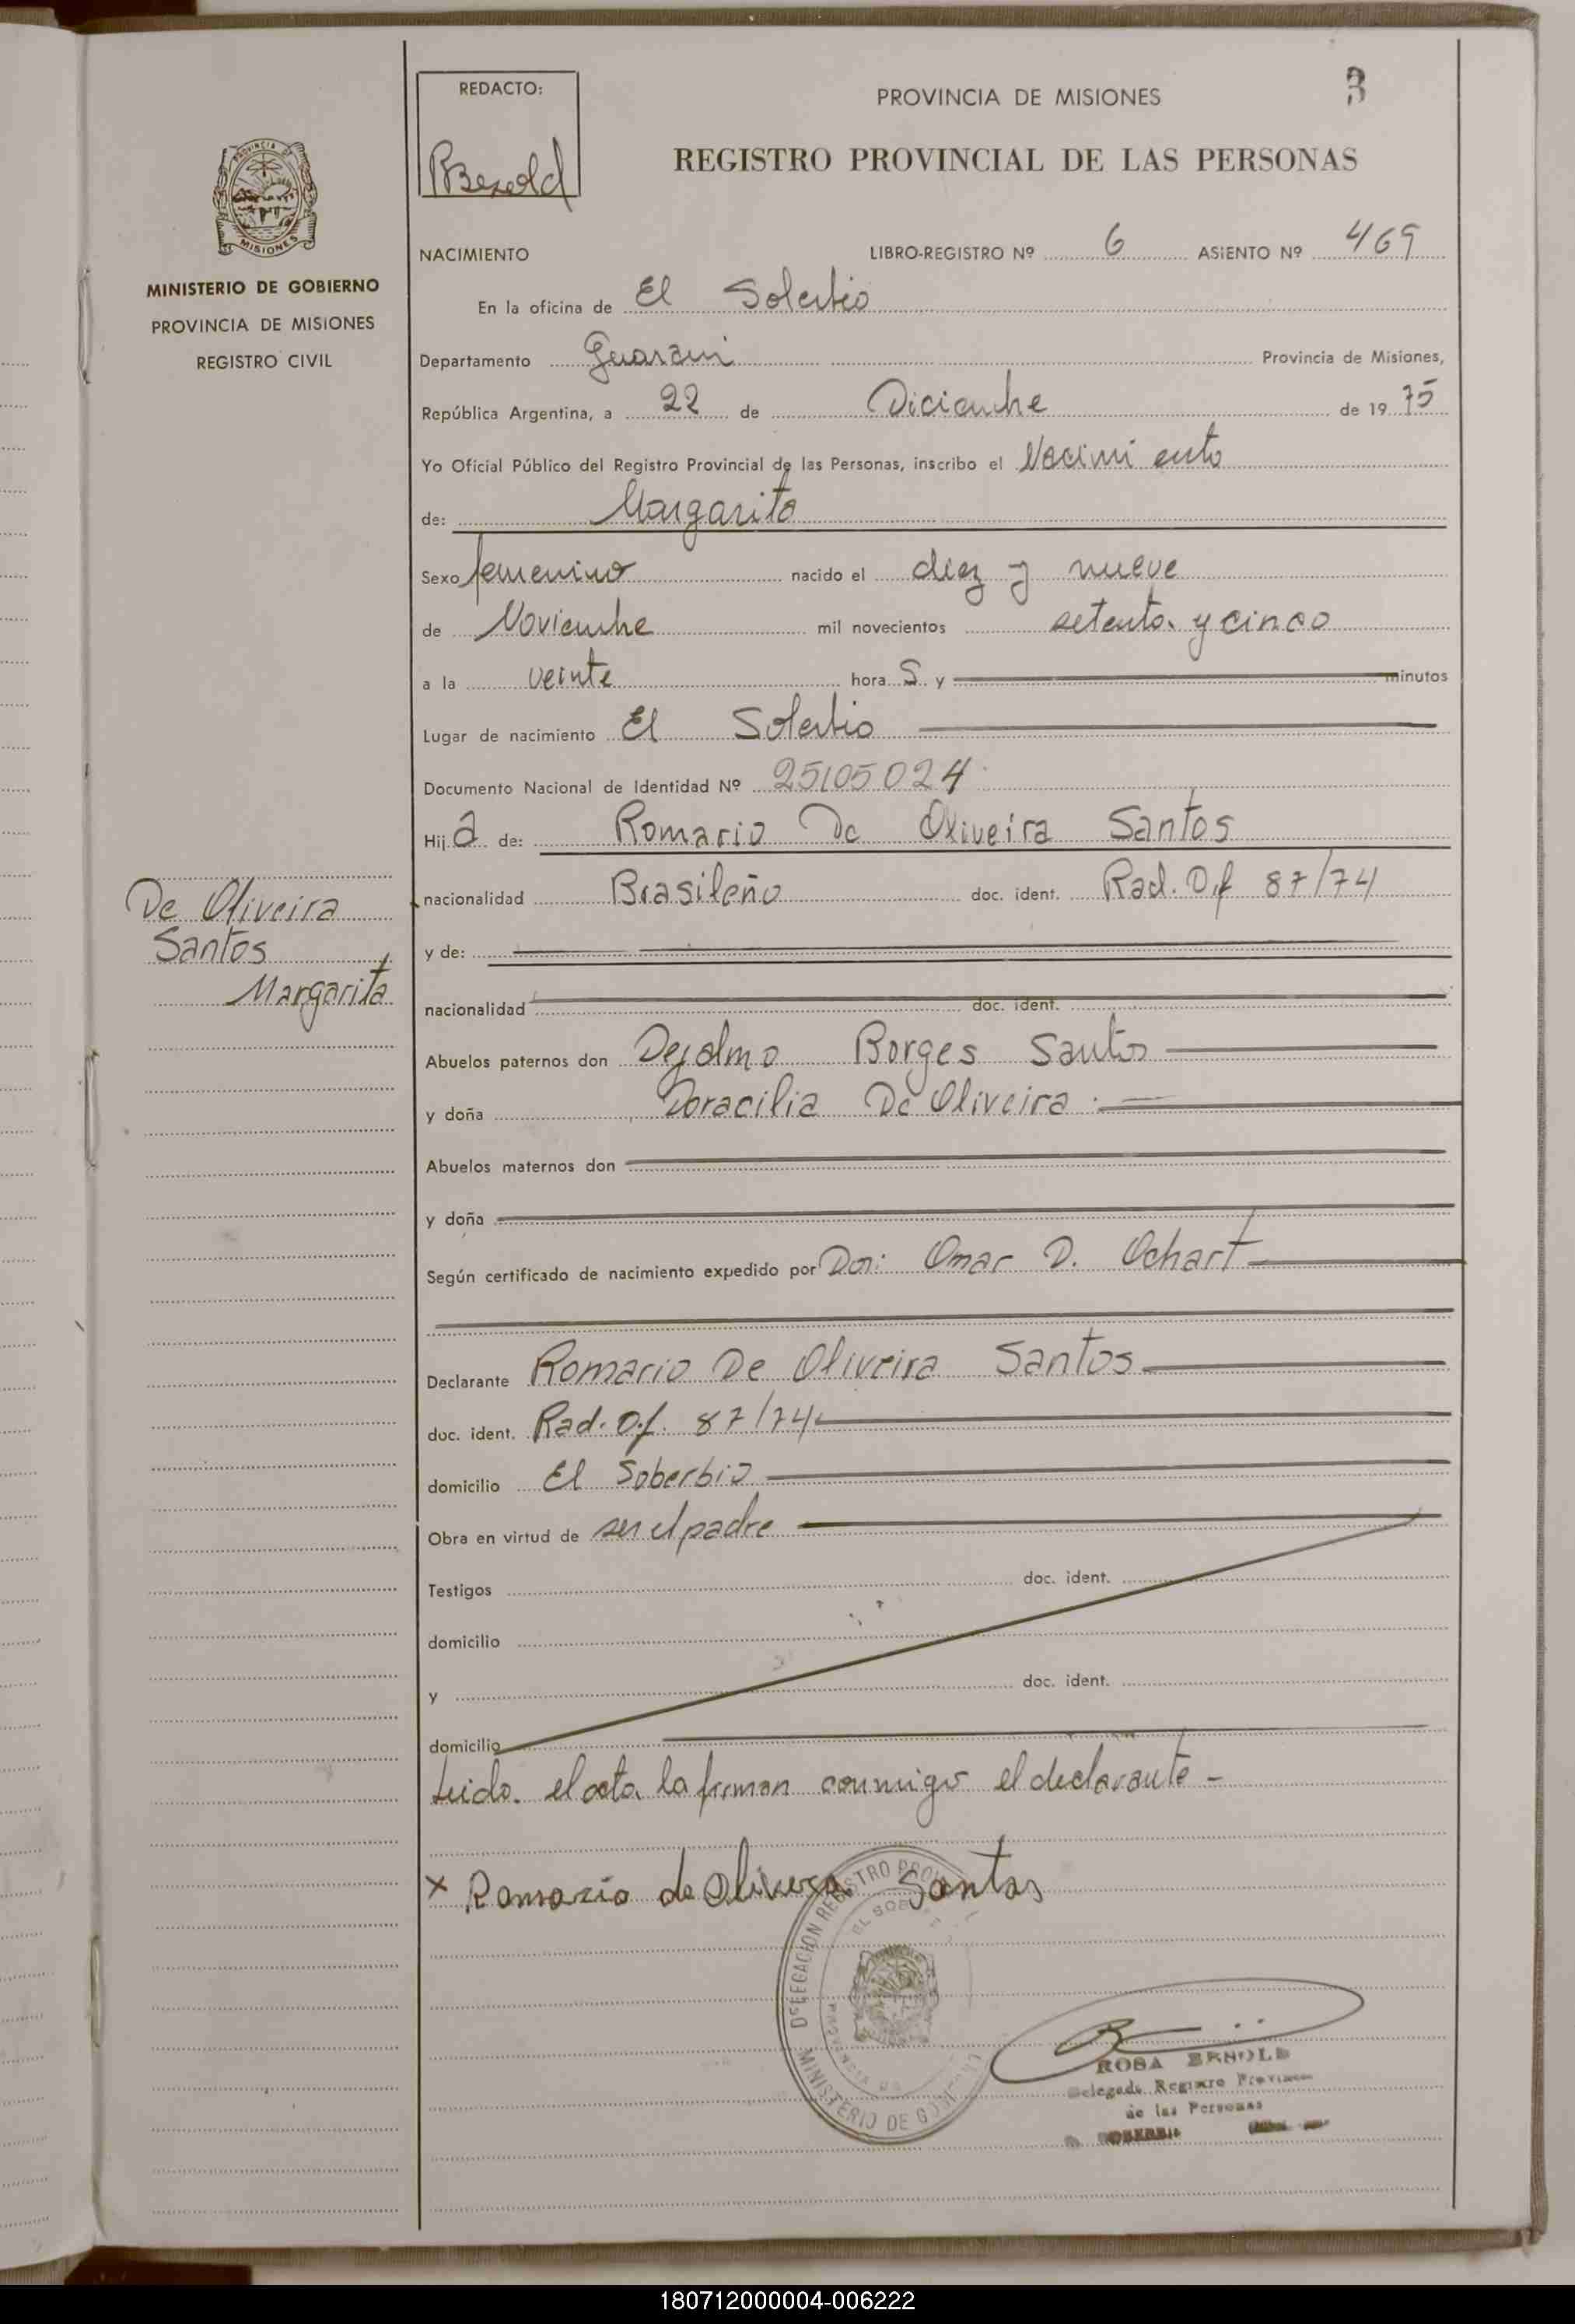 REDACTO:
PROVINCIA DE MISIONES
3
REGISTRO PROVINCIAL DE LAS PERSONAS
MISIONES
MINISTERIO DE GOBIERNO
PROVINCIA DE MISIONES
REGISTRO CIVIL
NACIMIENTO LIBRO-REGISTRO Nº 6 ASIENTO Nº 469
En la oficina de El Soberbio
Departamento Guarani Provincia de Misiones,
República Argentina, a 22 de Diciembre de 1975
Yo Oficial Público del Registro Provincial de las Personas, inscribo el Nacimiento
de: Margarita
Sexo femenino nacido el diez y nueve
de Noviembre mil novecientos setenta y cinco
a la veinte hora S y minutos
Lugar de nacimiento El Soberbio
Documento Nacional de Identidad Nº 25105024
Hij a de: Romario De Oliveira Santos
nacionalidad Brasileño doc. ident. Rad. Of 87/74
y de:
nacionalidad doc. ident.
De Oliveira
Santos
Margarita
Abuelos paternos don Dejalmo Borges Santos
y doña Doracilia De Oliveira
Abuelos maternos don
y doña
Según certificado de nacimiento expedido por Dor: Omar D. Ochart
Declarante Romario De Oliveira Santos
doc. ident. Rad. Of. 87/74
domicilio El Soberbio
Obra en virtud de ser el padre
Testigos doc. ident.
domicilio
y doc. ident.
domicilio
Leida el acta la firman conmigo el declarante -
x Romario de Olivera Santos
DELEGACION REGISTRO
MINISTERIO DE
ROSA
Delegada Registro
de las Personas
180712000004-006222